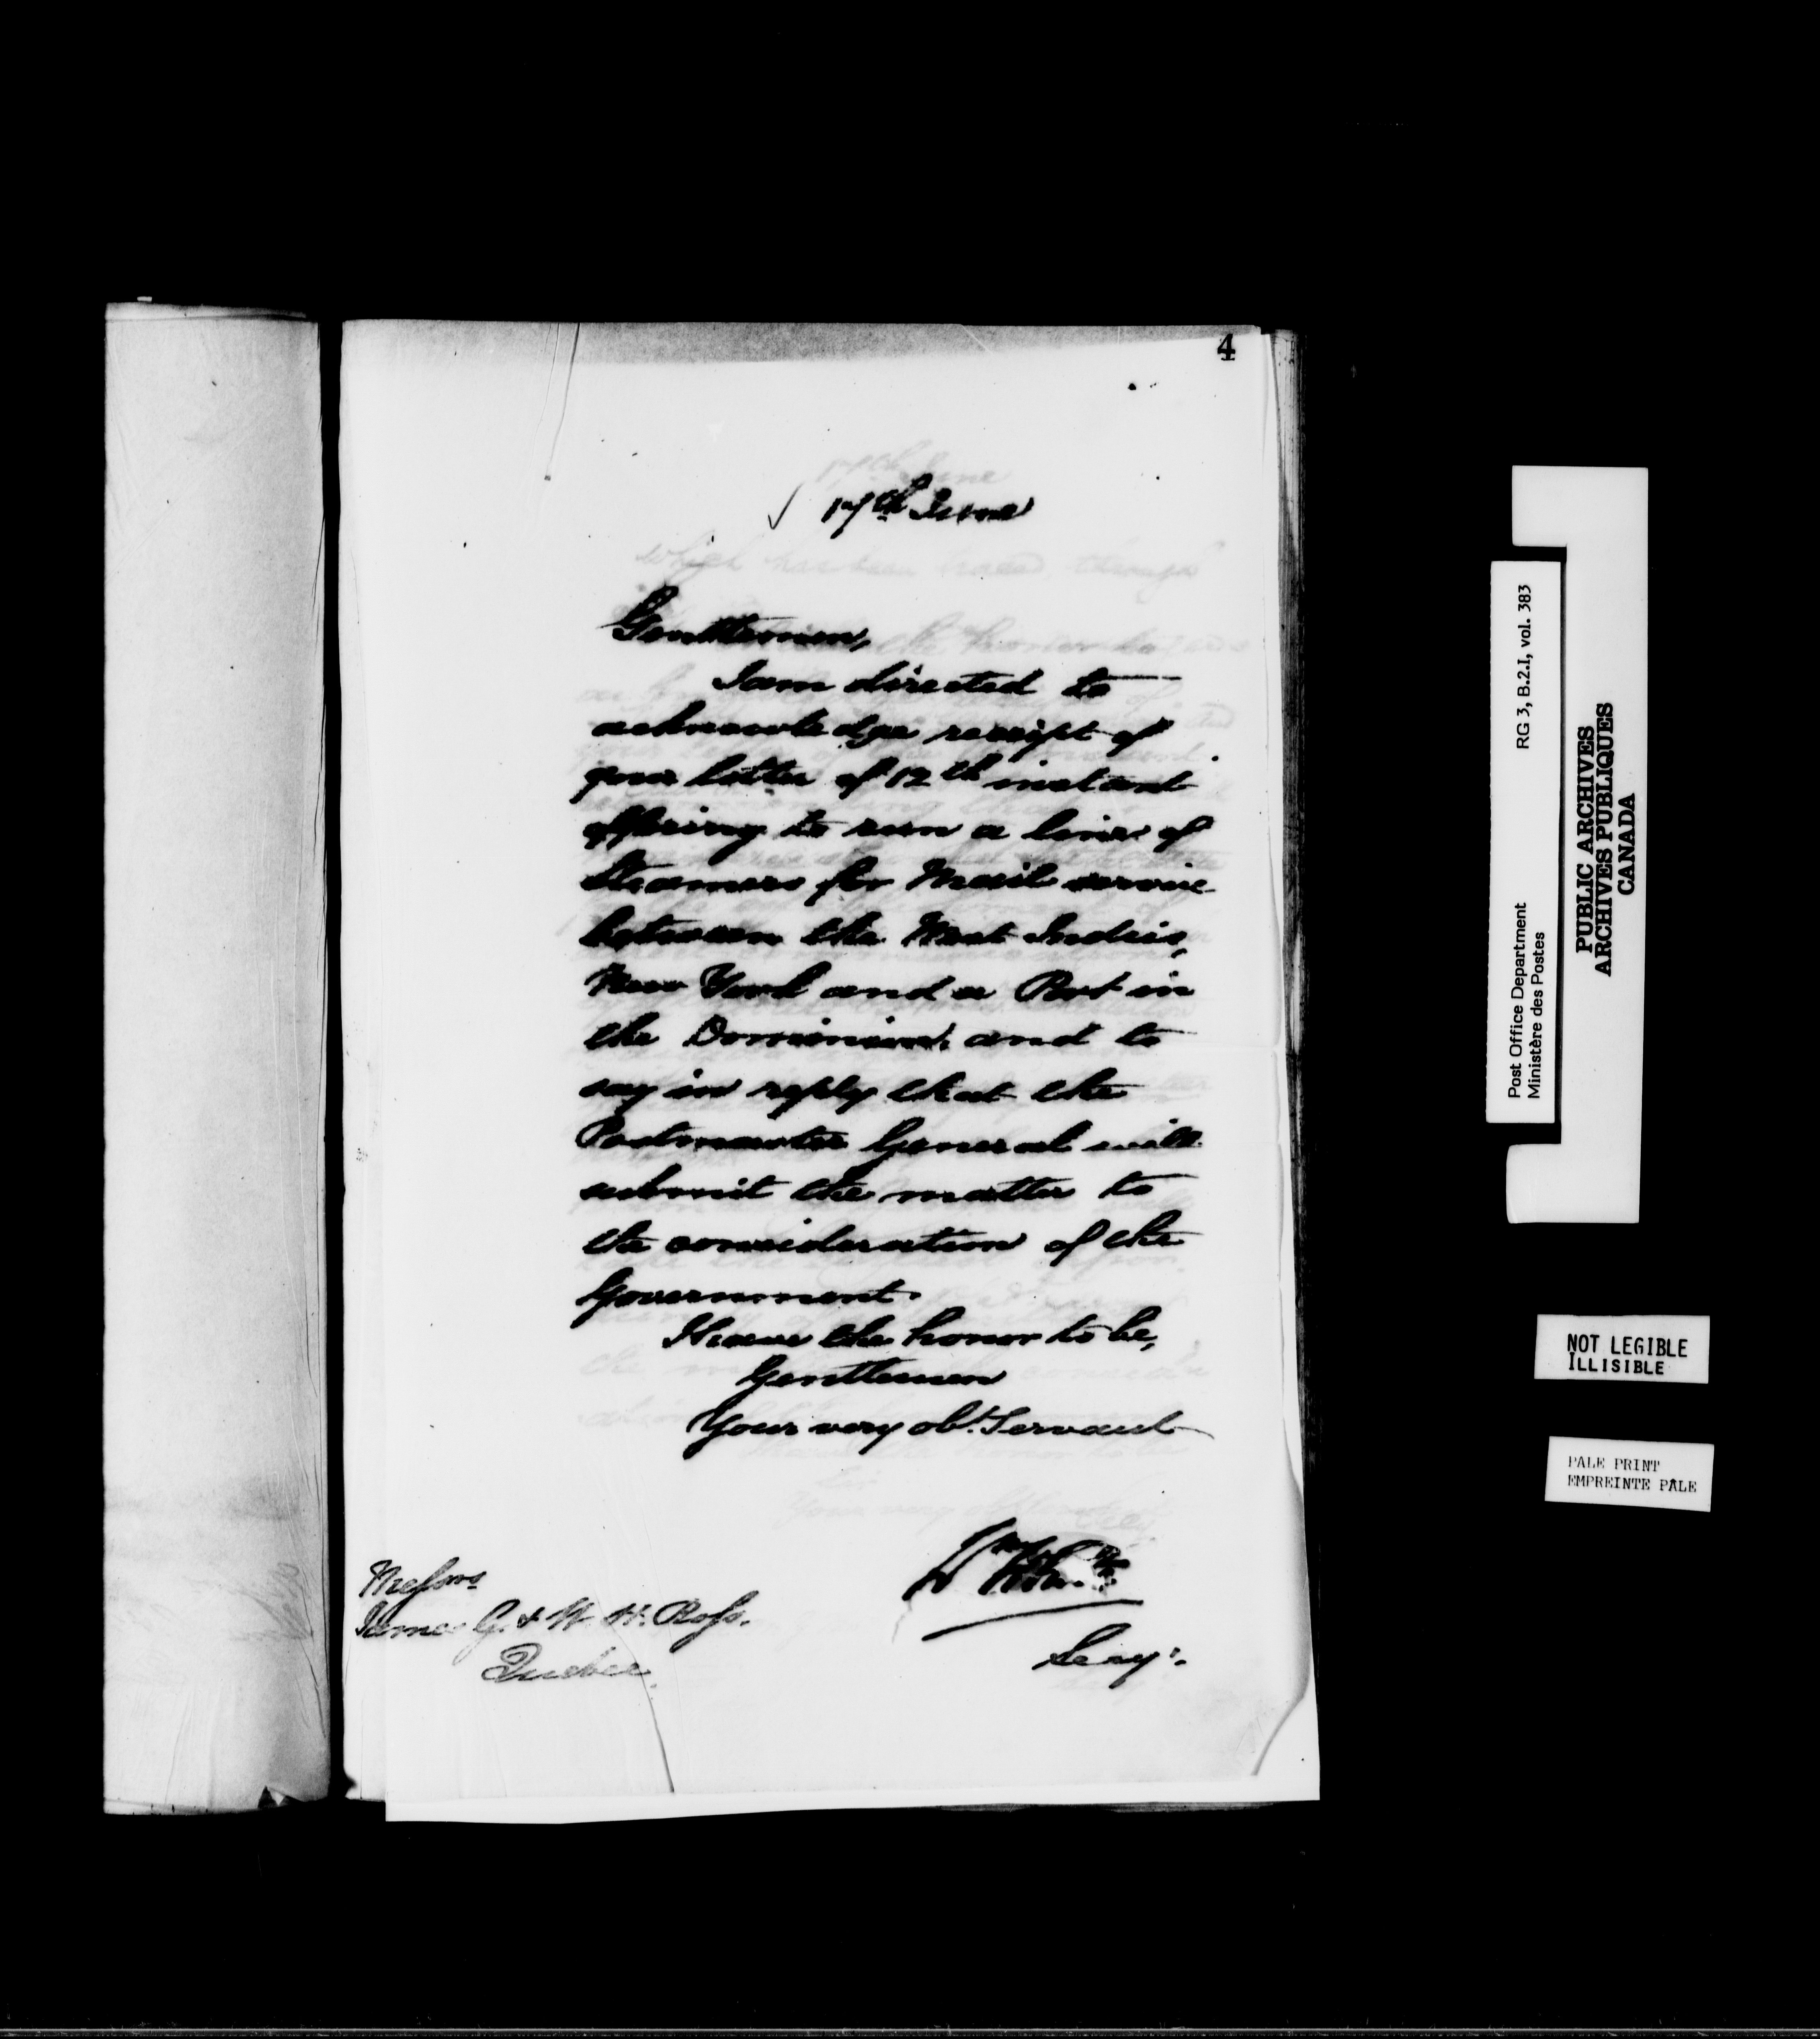 4
17th June
Gentlemen,
I am directed to
acknowledge receipt of
your letter of 12th instant
offering to run a line of
Steamers for Mail service
between the West Indies,
New York and a Port in
the Dominion, and to
say in reply that the
Postmaster General will
submit the matter to
the consideration of the
Government.
I have the honor to be,
Gentlemen
Your very obt. Servant
Secy.
Messrs
James G. & W. H. Ross.
Quebec.
Post Office Department RG 3, B.2.I, vol. 383
Ministère des Postes
PUBLIC ARCHIVES
ARCHIVES PUBLIQUES
CANADA
NOT LEGIBLE
ILLISIBLE
PALE PRINT
EMPREINTE PÂLE